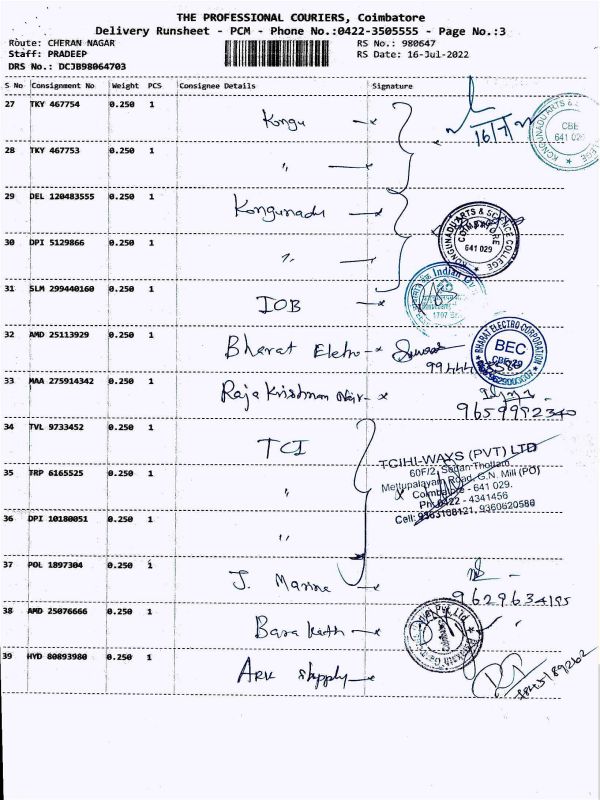 THE PROFESSIONAL COURIERS, Coimbatore
Delivery Runsheet - PCM - Phone No.:0422-3505555 - Page No.:3
Route: CHERAN NAGAR
Staff: PRADEEP
DRS No.: DCJB98064703
RS No.: 980647
RS Date: 16-Jul-2022
S No Consignment No Weight PCS Consignee Details Signature
27 TKY 467754 0.250 1 Kongu
16/7/
KONGUNADU ARTS & COLLEGE CBE 641 029
28 TKY 467753 0.250 1 〃
29 DEL 120483555 0.250 1 Kongunadu
KONGUNADU ARTS & SCIENCE COLLEGE COIMBATORE 641 029
30 DPI 5129866 0.250 1 〃
31 SLM 299440160 0.250 1 IOB
Indian
32 AMD 25113929 0.250 1 Bharat Eletro
BHARAT ELECTRO CORPORATION BEC CBE-29
33 MAA 275914342 0.250 1 Raja Krishnan Nair
9659992340
34 TVL 9733452 0.250 1 TCI
TCIHI-WAYS (PVT) LTD
60F/2, Sedan Thottam,
Mettupalayam Road, G.N. Mill (PO)
Coimbatore - 641 029.
Ph: 0422 - 4341456
Cell: 9363108121, 9360620580
35 TRP 6165525 0.250 1 〃
36 DPI 10180051 0.250 1 〃
37 POL 1897304 0.250 1 J. Marine
9629634195
38 AMD 25076666 0.250 1 Barakath
39 HYD 80893980 0.250 1 ARK Supply